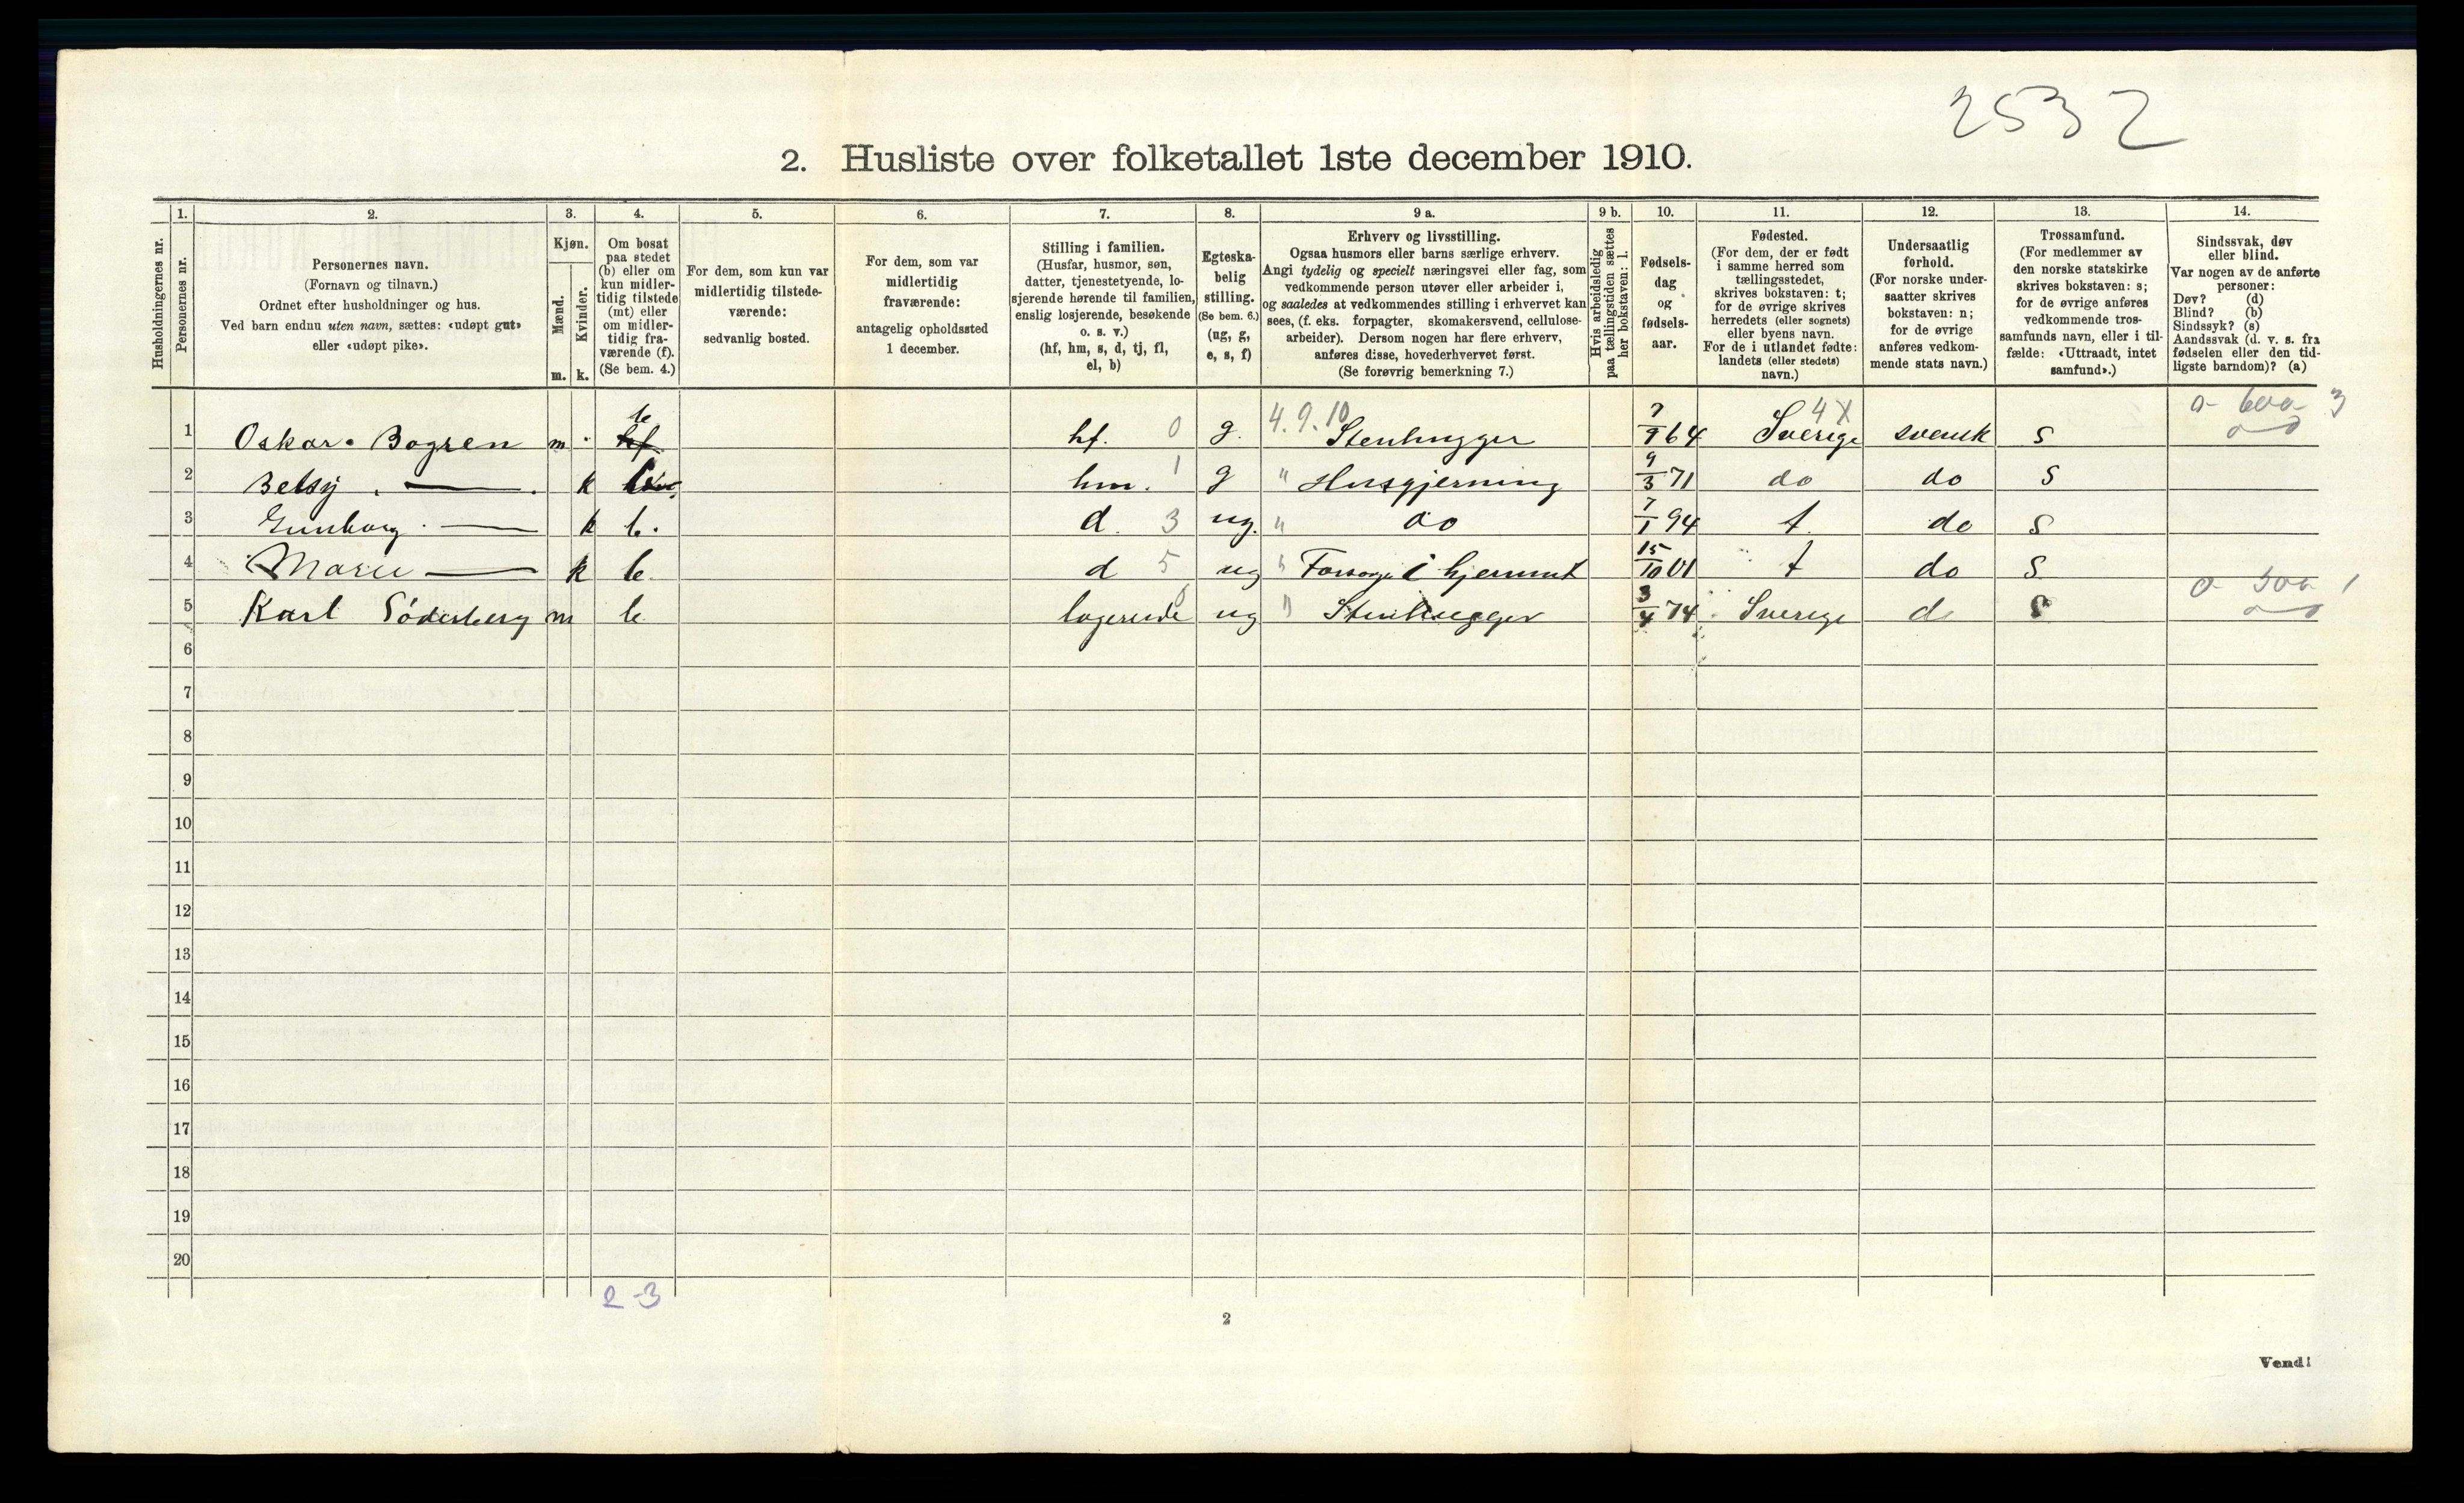 2532
2. Husliste over folketallet 1ste december 1910.
Husholdningernes nr.
1.
Personernes nr.
2.
Personernes navn.
(Fornavn og tilnavn.)
Ordnet efter husholdninger og hus.
Ved barn endnu uten navn, sættes: «udøpt gut»
eller «udøpt pike».
3.
Kjøn.
Mænd.
Kvinder.
m. k.
4.
Om bosat
paa stedet
(b) eller om
kun midler-
tidig tilstede
(mt) eller
om midler-
tidig fra-
værende (f).
(Se bem. 4.)
5.
For dem, som kun var
midlertidig tilstede-
værende:
sedvanlig bosted.
6.
For dem, som var
midlertidig
fraværende:
antagelig opholdssted
1 december.
7.
Stilling i familien.
(Husfar, husmor, søn,
datter, tjenestetyende, lo-
sjerende hørende til familien,
enslig losjerende, besøkende
o. s. v.)
(hf, hm, s, d, tj, fl,
el, b)
8.
Egteska-
belig
stilling.
(Se bem. 6.)
(ug, g,
e, s, f)
9 a.
Erhverv og livsstilling.
Ogsaa husmors eller barns særlige erhverv.
Angi tydelig og specielt næringsvei eller fag, som
vedkommende person utøver eller arbeider i,
og saaledes at vedkommendes stilling i erhvervet kan
sees, (f. eks. forpagter, skomakersvend, cellulose-
arbeider). Dersom nogen har flere erhverv,
anføres disse, hovederhvervet først.
(Se forøvrig bemerkning 7.)
9 b.
Hvis arbeidsledig
paa tællingstiden sættes
her bokstaven: l.
10.
Fødsels-
dag
og
fødsels-
aar.
11.
Fødested.
(For dem, der er født
i samme herred som
tællingsstedet,
skrives bokstaven: t;
for de øvrige skrives
herredets (eller sognets)
eller byens navn.
For de i utlandet fødte:
landets (eller stedets)
navn.)
12.
Undersaatlig
forhold.
(For norske under-
saatter skrives
bokstaven: n;
for de øvrige
anføres vedkom-
mende stats navn.)
13.
Trossamfund.
(For medlemmer av
den norske statskirke
skrives bokstaven: s;
for de øvrige anføres
vedkommende tros-
samfunds navn, eller i til-
fælde: «Uttraadt, intet
samfund».)
14.
Sindssvak, døv
eller blind.
Var nogen av de anførte
personer:
Døv? (d)
Blind? (b)
Sindssyk? (s)
Aandssvak (d. v. s. fra
fødselen eller den tid-
ligste barndom)? (a)
4.9.10 4 X 0 - 600 - 3
1 Oskar Bogren m b hf. 0 g. Stenhugger 7/9 64 Sverige svensk s 0 - 0
2 Betsy — k hm. 1 g " Husgjerning 9/3 71 do do s
3 Gunborg — k b. d. 3 ug. " do 7/1 94 t. do s
4 Marie — k b. d 5 ug " Forsørges i hjemmet 15/10 01 t do s
0 - 500 1
5 Karl Söderberg m b. logerende 6 ug " Stenhugger 3/4 74 Sverige do s 0 - 0
6
7
8
9
10
11
12
13
14
15
16
17
18
19
20
2 - 3
2
Vend!